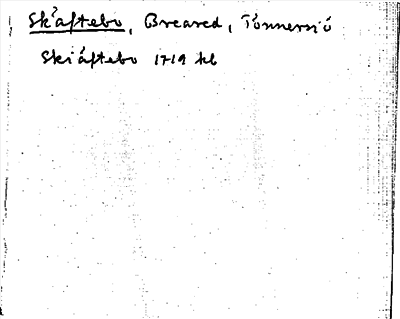 Skäftebo, Breared, Tönnersjö
Skiäftebo 1719 hl